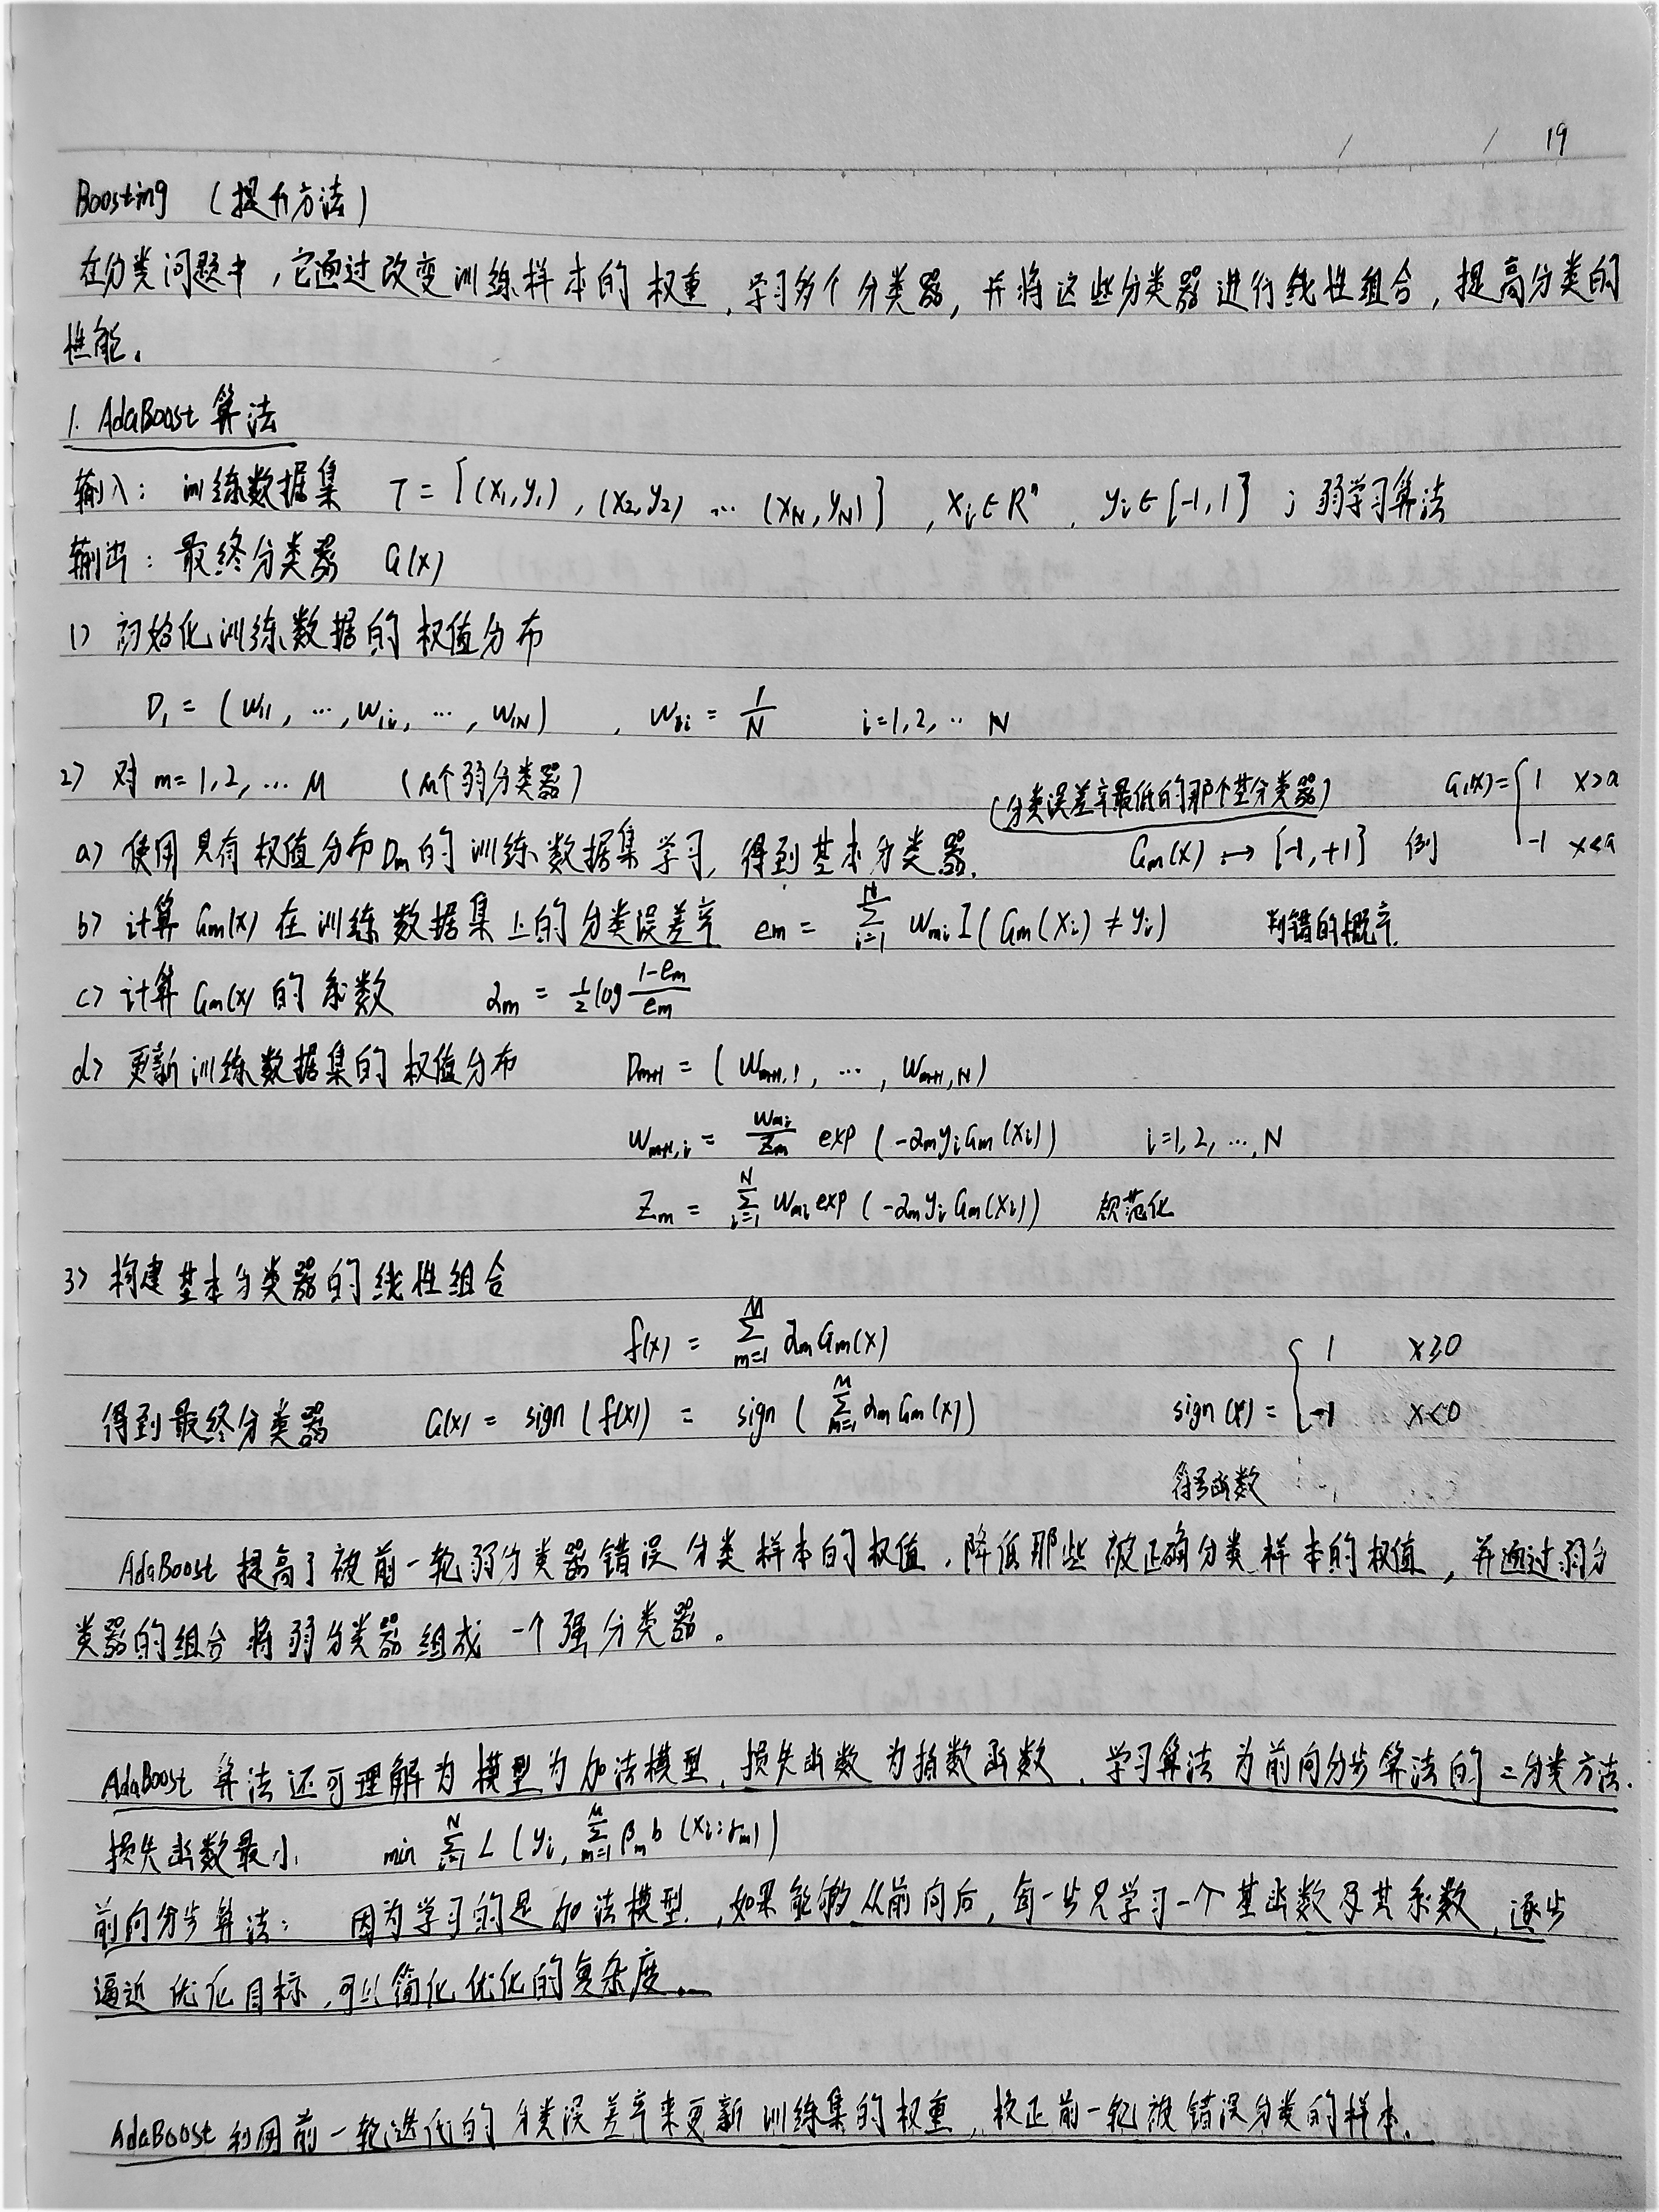 19
Boosting （提升方法）
在分类问题中，它通过改变训练样本的权重，学习多个分类器，并将这些分类器进行线性组合，提高分类的
性能。
1. AdaBoost 算法
输入： 训练数据集 T = {(x₁,y₁), (x₂,y₂) … (x_N,y_N)}, x_i∈Rⁿ, y_i∈{-1,1} ; 弱学习算法
输出：最终分类器 G(x)
1> 初始化训练数据的权值分布
D₁ = (w₁₁, …, w₁ᵢ, …, w₁N) , w₁ᵢ = 1/N i=1,2,… N
2> 对 m=1,2,… M （M个弱分类器）
（分类误差率最低的那个基分类器）
a> 使用具有权值分布Dm的训练数据集学习，得到基本分类器. Gm(x) ↦ {-1,+1} 例 G₁(x) = { 1 x>a
-1 x<a
b> 计算 Gm(x) 在训练数据集上的分类误差率 em = Σ_{i=1}^{N} w_{mi} I(Gm(x_i) ≠ y_i) 判错的概率.
c> 计算 Gm(x) 的系数 αm = 1/2 log (1-em)/em
d> 更新训练数据集的权值分布 D_{m+1} = (w_{m+1,1}, …, w_{m+1,N})
w_{m+1,i} = w_{mi}/Zm exp(-αm y_i Gm(x_i)) i=1,2,…,N
Zm = Σ_{i=1}^{N} w_{mi} exp(-αm y_i Gm(x_i)) 规范化
3> 构建基本分类器的线性组合
f(x) = Σ_{m=1}^{M} αm Gm(x)
得到最终分类器 G(x) = sign(f(x)) = sign(Σ_{m=1}^{M} αm Gm(x)) sign(x) = { 1 x≥0
-1 x<0
符号函数
AdaBoost 提高了被前一轮弱分类器错误分类样本的权值，降低那些被正确分类样本的权值，并通过弱分
类器的组合将弱分类器组成一个强分类器。
AdaBoost 算法还可理解为模型为加法模型，损失函数为指数函数，学习算法为前向分步算法的二分类方法.
损失函数最小 min Σ_{i=1}^{N} L(y_i, Σ_{m=1}^{M} βm b(x_i;γm))
前向分步算法： 因为学习的是加法模型，如果能够从前向后，每一步只学习一个基函数及其系数，逐步
逼近优化目标，可以简化优化的复杂度.
AdaBoost 利用前一轮迭代的分类误差率来更新训练集的权重，校正前一轮被错误分类的样本.